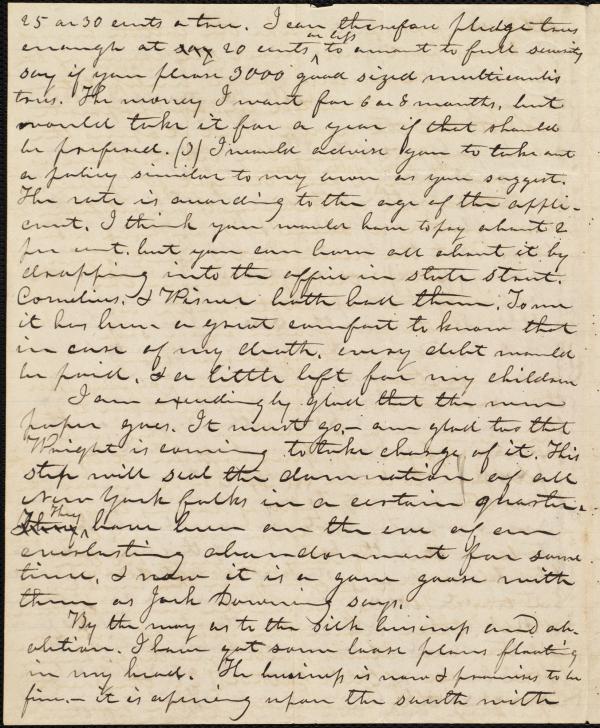 25 or 30 cents a tree. I can therefore pledge trees
enough at say 20 cents or less to amount to full security
say if you please 3000 good sized multicaulis
trees. The money I want for 6 or 8 months, but
would take it for a year if that should
be prefered. (3) I would advise you to take out
a policy similar to my own as you suggest.
The rate is according to the age of the appli-
cant. I think you would have to pay about 2
per cent. but you can learn all about it by
dropping into the office in State Street.
Cornelius. & Wisner both had them. To me
it has been a great comfort to know that
in case of my death, every debt would
be paid, & a little left for my children
I am exceedingly glad that the new
paper goes. It must go, - am glad too that
Wright is coming to take charge of it. This
step will seal the damnation of all
New York folks in a certain quarter.
They have been on the eve of an
everlasting abandonment for some
time. & now it is a gone goose with
them as Jack Downing says.
By the way as to the silk business and ab-
olition. I have got some loose plans floating
in my head. The business is new & promises to be
fine. - it is opening upon the south with